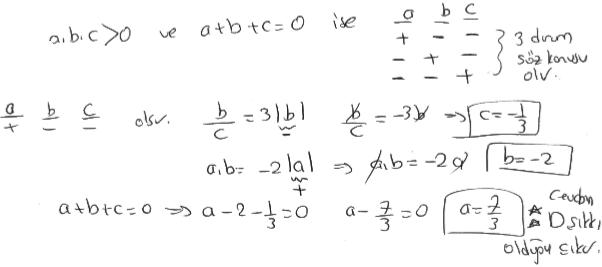 a.b.c>0 ve a+b+c=0 ise
a b c
+ - -
- + -
- - +
3 durum
söz konusu
olur.
a b c
+ - - olsun. b/c = 3|b| b/c = -3b ⇒ c = -1/3
a.b = -2|a| ⇒ a.b = -2a b = -2
+
a+b+c=0 ⇒ a-2-1/3=0 a-7/3=0 a=7/3
Cevabın
D şıkkı
olduğu çıkar.